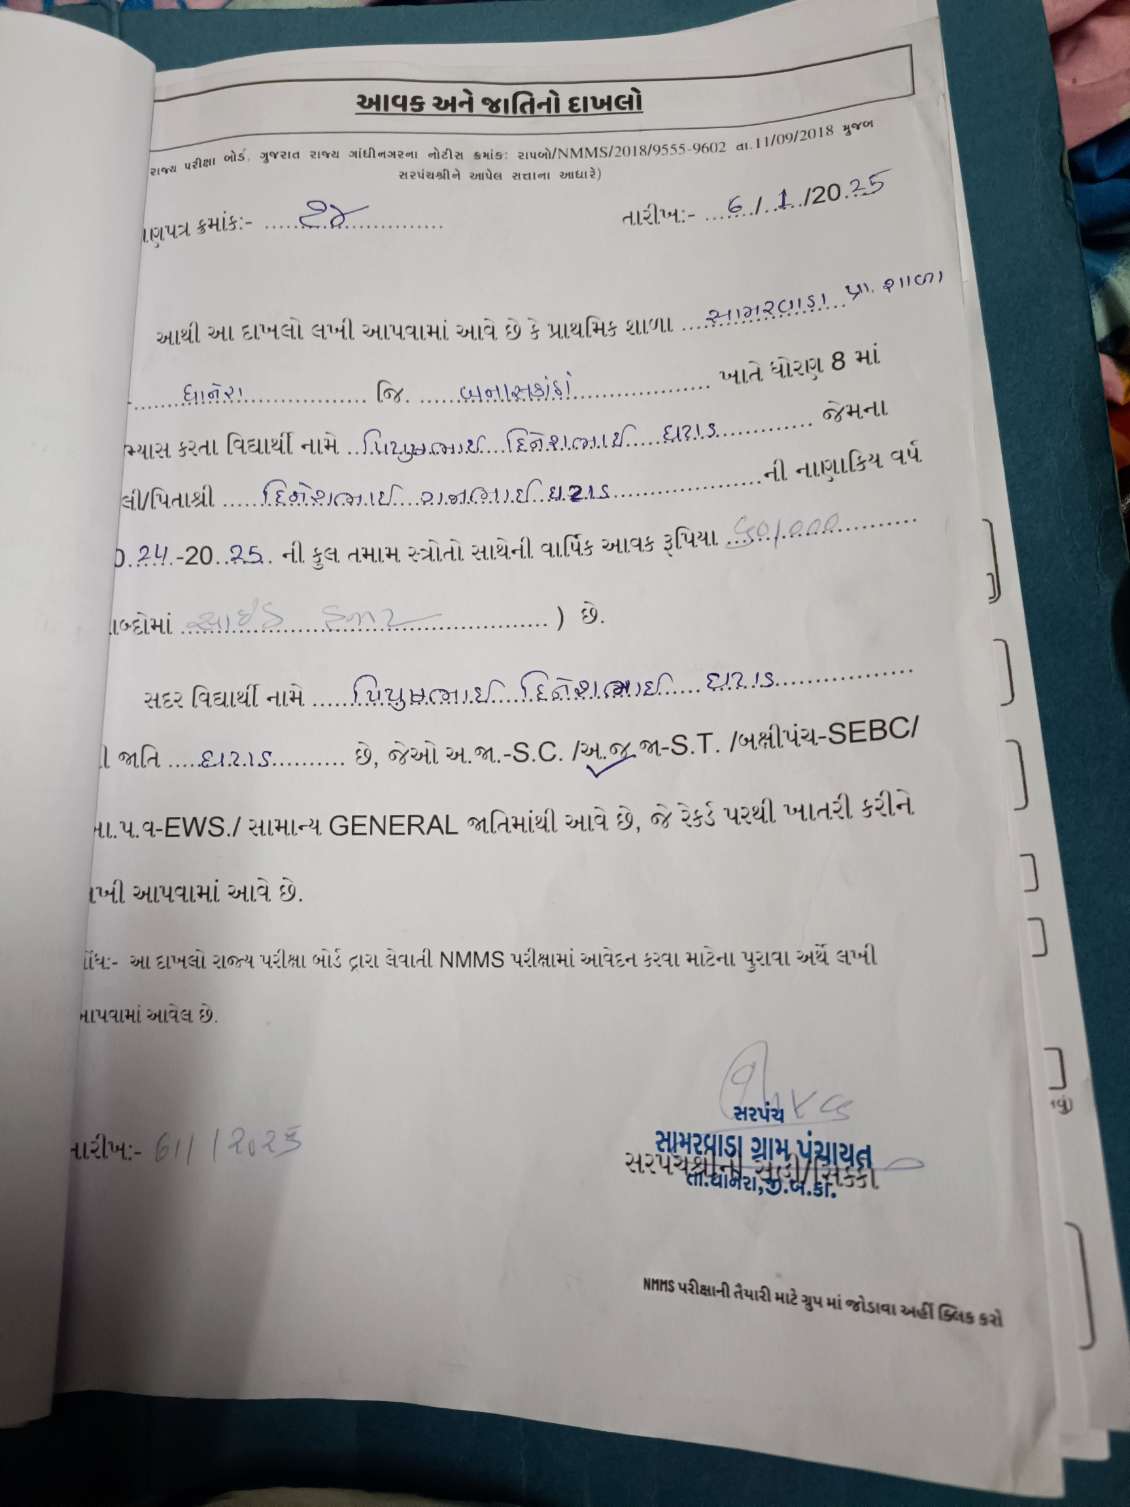 આવક અને જાતિનો દાખલો
રાજ્ય પરીક્ષા બોર્ડ, ગુજરાત રાજ્ય ગાંધીનગરના નોટીસ ક્રમાંક: રાપબો/NMMS/2018/9555-9602 તા.11/09/2018 મુજબ
સરપંચશ્રીને આપેલ સત્તાના આધારે)
ણપત્ર ક્રમાંક:- ............ તારીખ:- 6/1/2025
આથી આ દાખલો લખી આપવામાં આવે છે કે પ્રાથમિક શાળા સામરવાડા પ્રા. શાળા
ધાનેરા જિ. બનાસકાંઠા ખાતે ધોરણ 8 માં
ભ્યાસ કરતા વિદ્યાર્થી નામે પિયુષભાઈ દિનેશભાઈ ધરાડ જેમના
લી/પિતાશ્રી દિનેશભાઈ ગનભાઈ ધરાડ ની નાણાકિય વર્ષ
0.24-20.25. ની કુલ તમામ સ્ત્રોતો સાથેની વાર્ષિક આવક રૂપિયા 60,000
બ્દોમાં સાઈઠ હજાર ) છે.
સદર વિદ્યાર્થી નામે પિયુષભાઈ દિનેશભાઈ ધરાડ
ી જાતિ ધરાડ છે, જેઓ અ.જા.-S.C. /અ.જ.જા-S.T. /બક્ષીપંચ-SEBC/
મા.પ.વ-EWS./ સામાન્ય GENERAL જાતિમાંથી આવે છે, જે રેકર્ડ પરથી ખાતરી કરીને
ખી આપવામાં આવે છે.
ોંધ:- આ દાખલો રાજ્ય પરીક્ષા બોર્ડ દ્વારા લેવાતી NMMS પરીક્ષામાં આવેદન કરવા માટેના પુરાવા અર્થે લખી
આપવામાં આવેલ છે.
સરપંચ
સામરવાડા ગ્રામ પંચાયત
તારીખ:- 6/1/2025 સરપંચશ્રીની સહી/સિક્કો
તા.ધાનેરા,જી.બ.કાં.
NMMS પરીક્ષાની તૈયારી માટે ગ્રુપ માં જોડાવા અહીં ક્લિક કરો